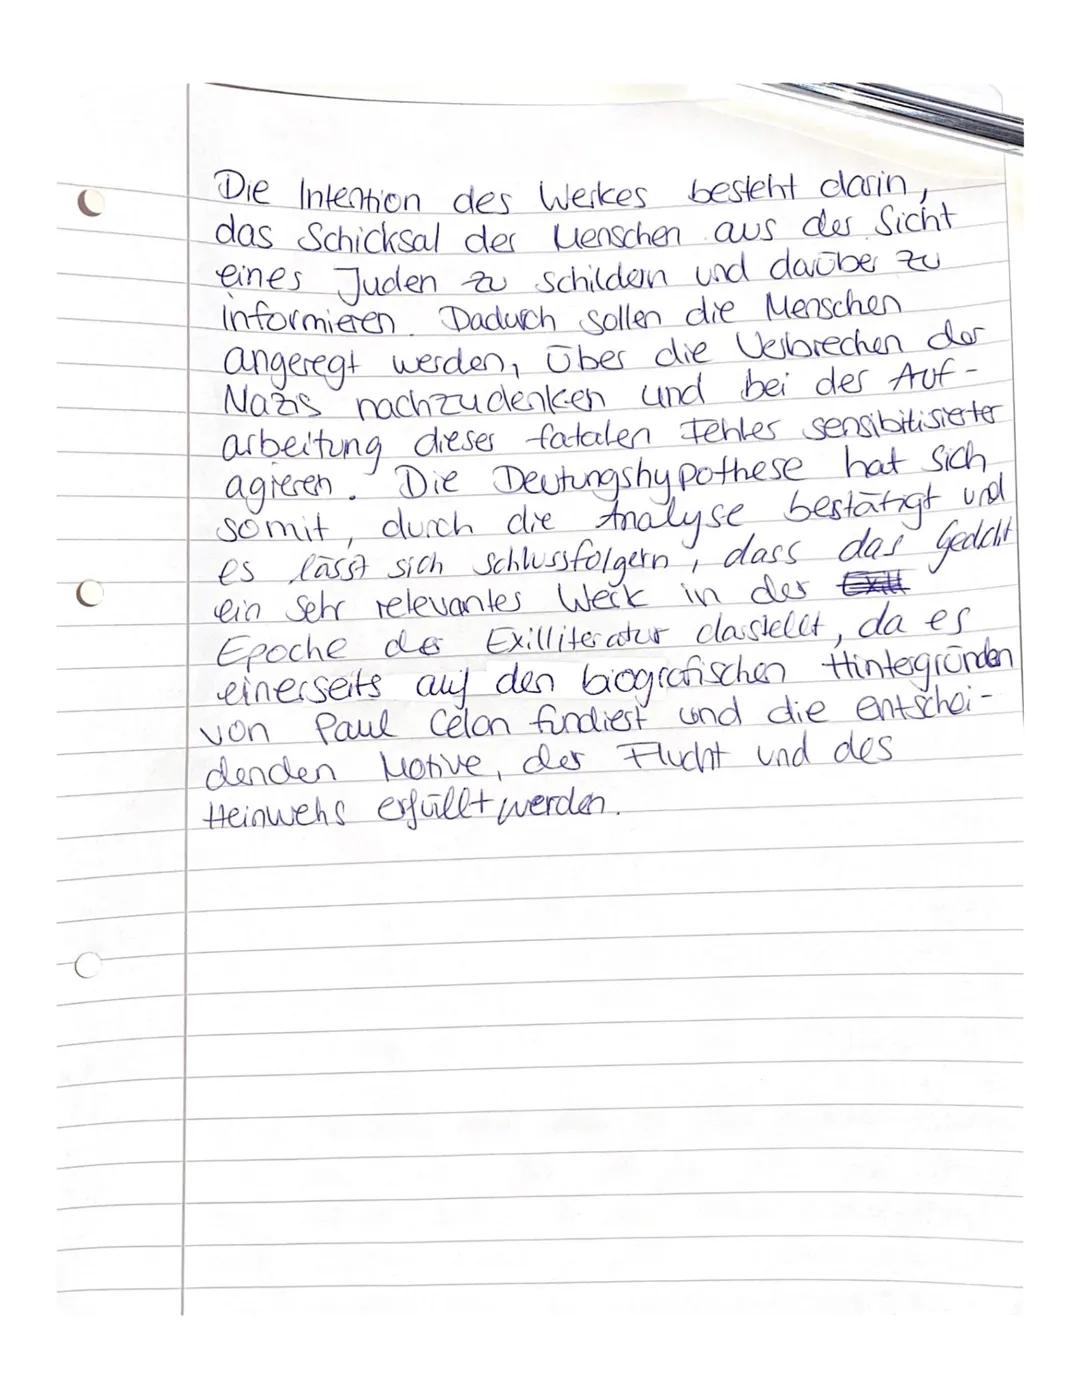 Die Intention des Werkes besteht darin,
das Schicksal der Menschen aus der Sicht
eines Juden zu schildern und darüber zu
informieren. Dadurch sollen die Menschen
angeregt werden, über die Verbrechen der
Nazis nachzudenken und bei der Auf-
arbeitung dieser fatalen Fehler sensibilisierter
agieren. Die Deutungshypothese hat sich
somit, durch die Analyse bestätigt und
es lässt sich schlussfolgern, dass das Gedicht
ein sehr relevantes Werk in der
Epoche der Exilliteratur darstellt, da es
einerseits auf den biografischen Hintergründen
von Paul Celan fundiert und die entschei-
denden Motive, der Flucht und des
Heimwehs erfüllt werden.